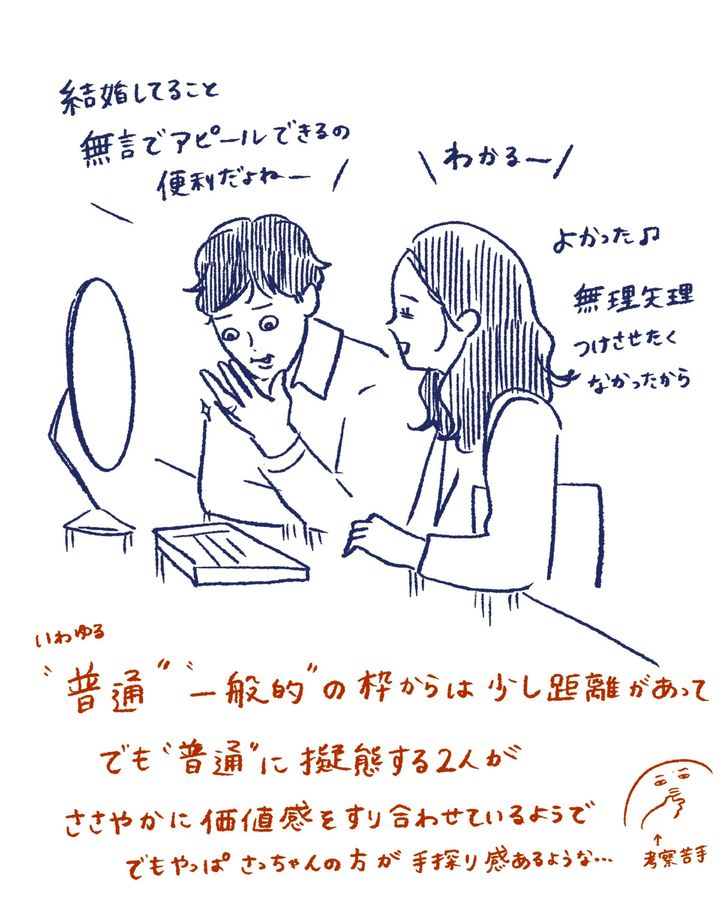 結婚してること
無言でアピールできるの
便利だよねー
わかるー
よかった♫
無理矢理
つけさせたく
なかったから
いわゆる
"普通" "一般的"の枠からは少し距離があって
でも"普通"に擬態する2人が
ささやかに価値感をすり合わせているようで
でもやっぱさっちゃんの方が手探り感あるような…
↑
考察苦手